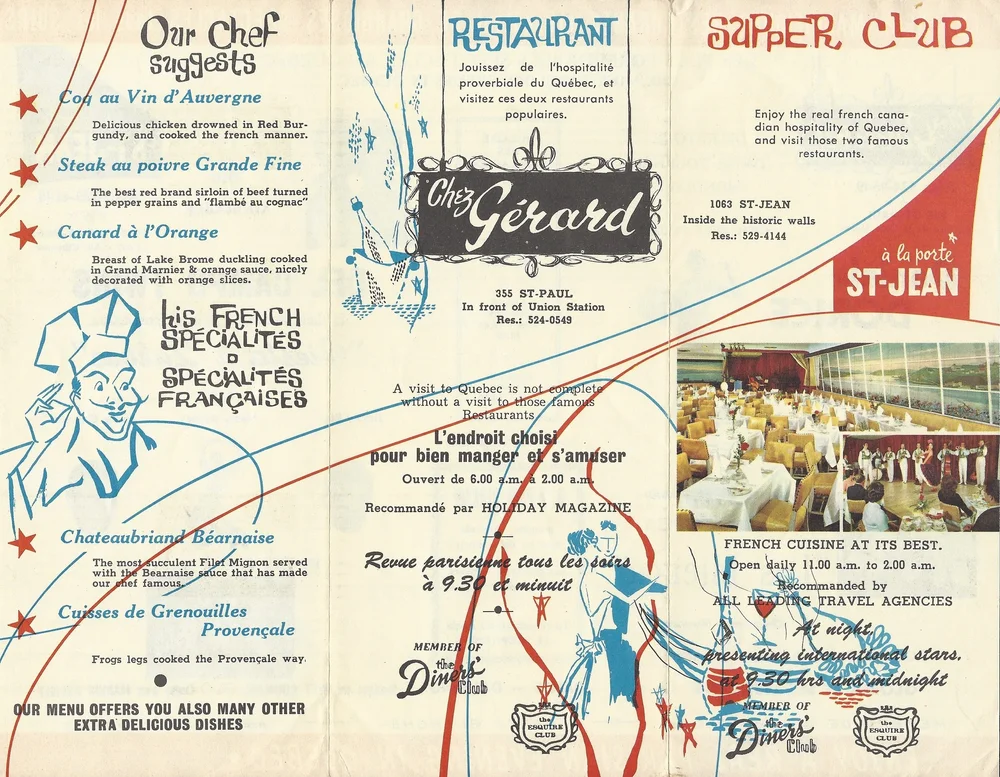 Our Chef
suggests
Coq au Vin d'Auvergne
Delicious chicken drowned in Red Bur-
gundy, and cooked the french manner.
Steak au poivre Grande Fine
The best red brand sirloin of beef turned
in pepper grains and "flambé au cognac"
Canard à l'Orange
Breast of Lake Brome duckling cooked
in Grand Marnier & orange sauce, nicely
decorated with orange slices.
his FRENCH
SPÉCIALITÉS
SPÉCIALITÉS
FRANÇAISES
Chateaubriand Béarnaise
The most succulent Filet Mignon served
with the Bearnaise sauce that has made
our chef famous.
Cuisses de Grenouilles
Provençale
Frogs legs cooked the Provençale way.
OUR MENU OFFERS YOU ALSO MANY OTHER
EXTRA DELICIOUS DISHES
RESTAURANT
Jouissez de l'hospitalité
proverbiale du Québec, et
visitez ces deux restaurants
populaires.
Chez
Gérard
355 ST-PAUL
In front of Union Station
Res.: 524-0549
A visit to Quebec is not complete
without a visit to those famous
Restaurants
L'endroit choisi
pour bien manger et s'amuser
Ouvert de 6.00 a.m. à 2.00 a.m.
Recommandé par HOLIDAY MAGAZINE
Revue parisienne tous les soirs
à 9.30 et minuit
MEMBER OF
the
Diners'
Club
the
ESQUIRE
CLUB
SUPPER CLUB
Enjoy the real french cana-
dian hospitality of Quebec,
and visit those two famous
restaurants.
1063 ST-JEAN
Inside the historic walls
Res.: 529-4144
à la porte
ST-JEAN
FRENCH CUISINE AT ITS BEST.
Open daily 11.00 a.m. to 2.00 a.m.
Recommanded by
ALL LEADING TRAVEL AGENCIES
At night,
presenting international stars.
at 9.30 hrs and midnight
MEMBER OF
the
Diners'
Club
the
ESQUIRE
CLUB